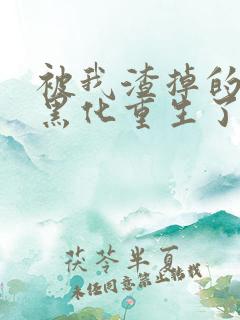 被我渣掉的
黑化重生了
茯苓半夏
未经同意禁止转载